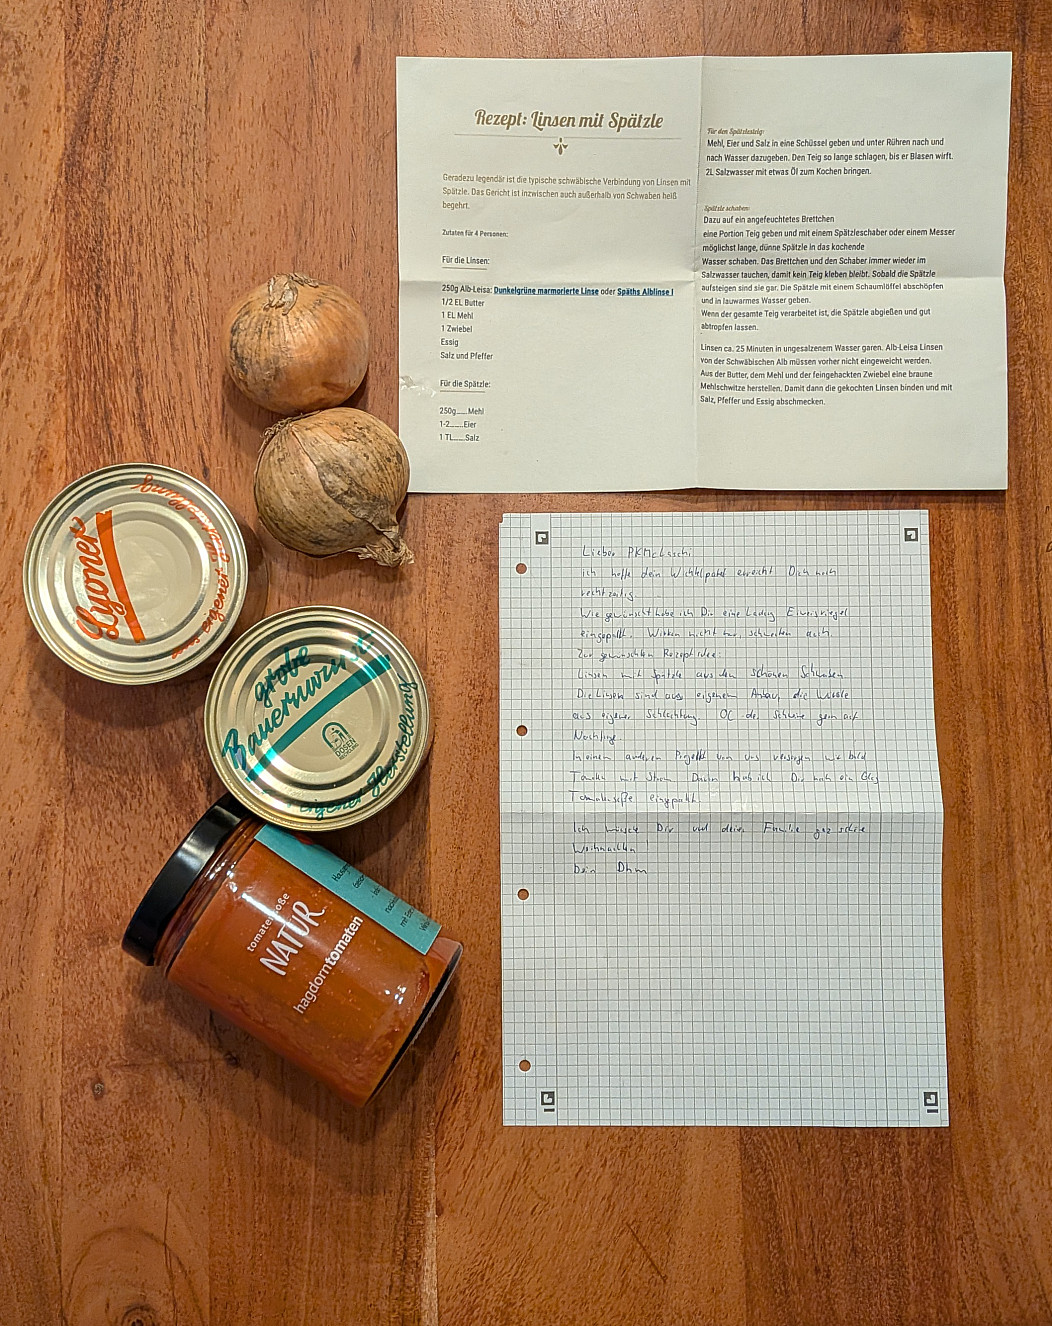 Rezept: Linsen mit Spätzle
Geradezu legendär ist die typische schwäbische Verbindung von Linsen mit
Spätzle. Das Gericht ist inzwischen auch außerhalb von Schwaben heiß
begehrt.
Zutaten für 4 Personen:
Für die Linsen:
250g Alb-Leisa: Dunkelgrüne marmorierte Linse oder Späths Alblinse I
1/2 EL Butter
1 EL Mehl
1 Zwiebel
Essig
Salz und Pfeffer
Für die Spätzle:
250g......Mehl
1-2.......Eier
1 TL......Salz
Für den Spätzlesteig:
Mehl, Eier und Salz in eine Schüssel geben und unter Rühren nach und
nach Wasser dazugeben. Den Teig so lange schlagen, bis er Blasen wirft.
2L Salzwasser mit etwas Öl zum Kochen bringen.
Spätzle schaben:
Dazu auf ein angefeuchtetes Brettchen
eine Portion Teig geben und mit einem Spätzleschaber oder einem Messer
möglichst lange, dünne Spätzle in das kochende
Wasser schaben. Das Brettchen und den Schaber immer wieder im
Salzwasser tauchen, damit kein Teig kleben bleibt. Sobald die Spätzle
aufsteigen sind sie gar. Die Spätzle mit einem Schaumlöffel abschöpfen
und in lauwarmes Wasser geben.
Wenn der gesamte Teig verarbeitet ist, die Spätzle abgießen und gut
abtropfen lassen.
Linsen ca. 25 Minuten in ungesalzenem Wasser garen. Alb-Leisa Linsen
von der Schwäbischen Alb müssen vorher nicht eingeweicht werden.
Aus der Butter, dem Mehl und der feingehackten Zwiebel eine braune
Mehlschwitze herstellen. Damit dann die gekochten Linsen binden und mit
Salz, Pfeffer und Essig abschmecken.
Lyoner
aus eigener Herstellung
grobe
Bauernwurst
eigener Herstellung
DOSEN
RECYCLING
tomatensoße
NATUR
hagdorntomaten
Lieber PKMcLaschi
ich hoffe dein Wichtelpaket erreicht Dich noch
rechtzeitig.
Wie gewünscht habe ich Dir eine Ladung Eiweisriegel
eingepackt. Wirken nicht nur, schmecken auch.
Zur gewünschten Rezeptidee:
Linsen mit Spätzle aus dem schönen Schwaben
Die Linsen sind aus eigenem Anbau, die Würste
aus eigener Schlachtung. die Schweine gern auf
In einem anderen Projekt von uns versorgen wir bald
Tomaten mit Strom. Darum hab ich Dir noch ein Glas
Tomatensoße eingepackt.
Ich wünsche Dir und deiner Familie ganz schöne
Weihnachten!
Dein Dhm